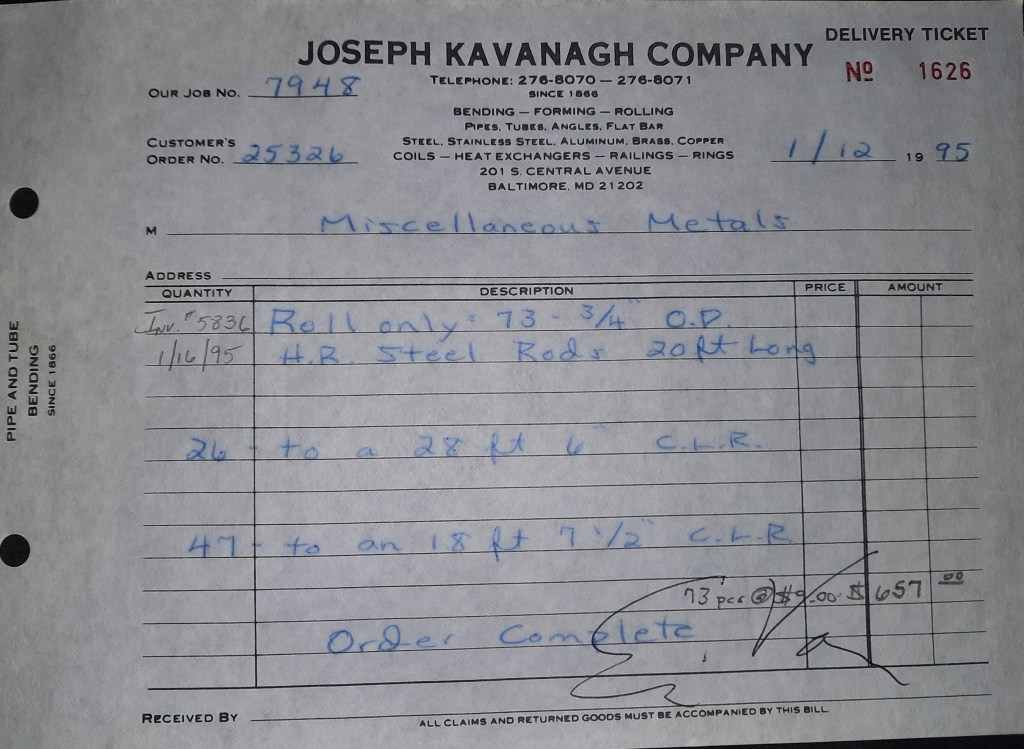 DELIVERY TICKET
JOSEPH KAVANAGH COMPANY
Nº 1626
TELEPHONE: 276-8070 — 276-8071
SINCE 1866
OUR JOB NO. 7948
BENDING — FORMING — ROLLING
PIPES, TUBES, ANGLES, FLAT BAR
STEEL, STAINLESS STEEL, ALUMINUM, BRASS, COPPER
CUSTOMER'S
ORDER NO. 25326
COILS — HEAT EXCHANGERS — RAILINGS — RINGS
1/12 19 95
201 S. CENTRAL AVENUE
BALTIMORE, MD 21202
M Miscellaneous Metals
ADDRESS
QUANTITY DESCRIPTION PRICE AMOUNT
Inv. # 5836 Roll only: 73 - 3/4" O.D.
1/16/95 H.R. Steel Rods 20ft Long
26 - to a 28 ft 6" C.L.R.
47 - to an 18 ft 7 1/2" C.L.R.
73 pcs @ $9.00 $ 657 00
Order Complete
RECEIVED BY
ALL CLAIMS AND RETURNED GOODS MUST BE ACCOMPANIED BY THIS BILL
PIPE AND TUBE
BENDING
SINCE 1866